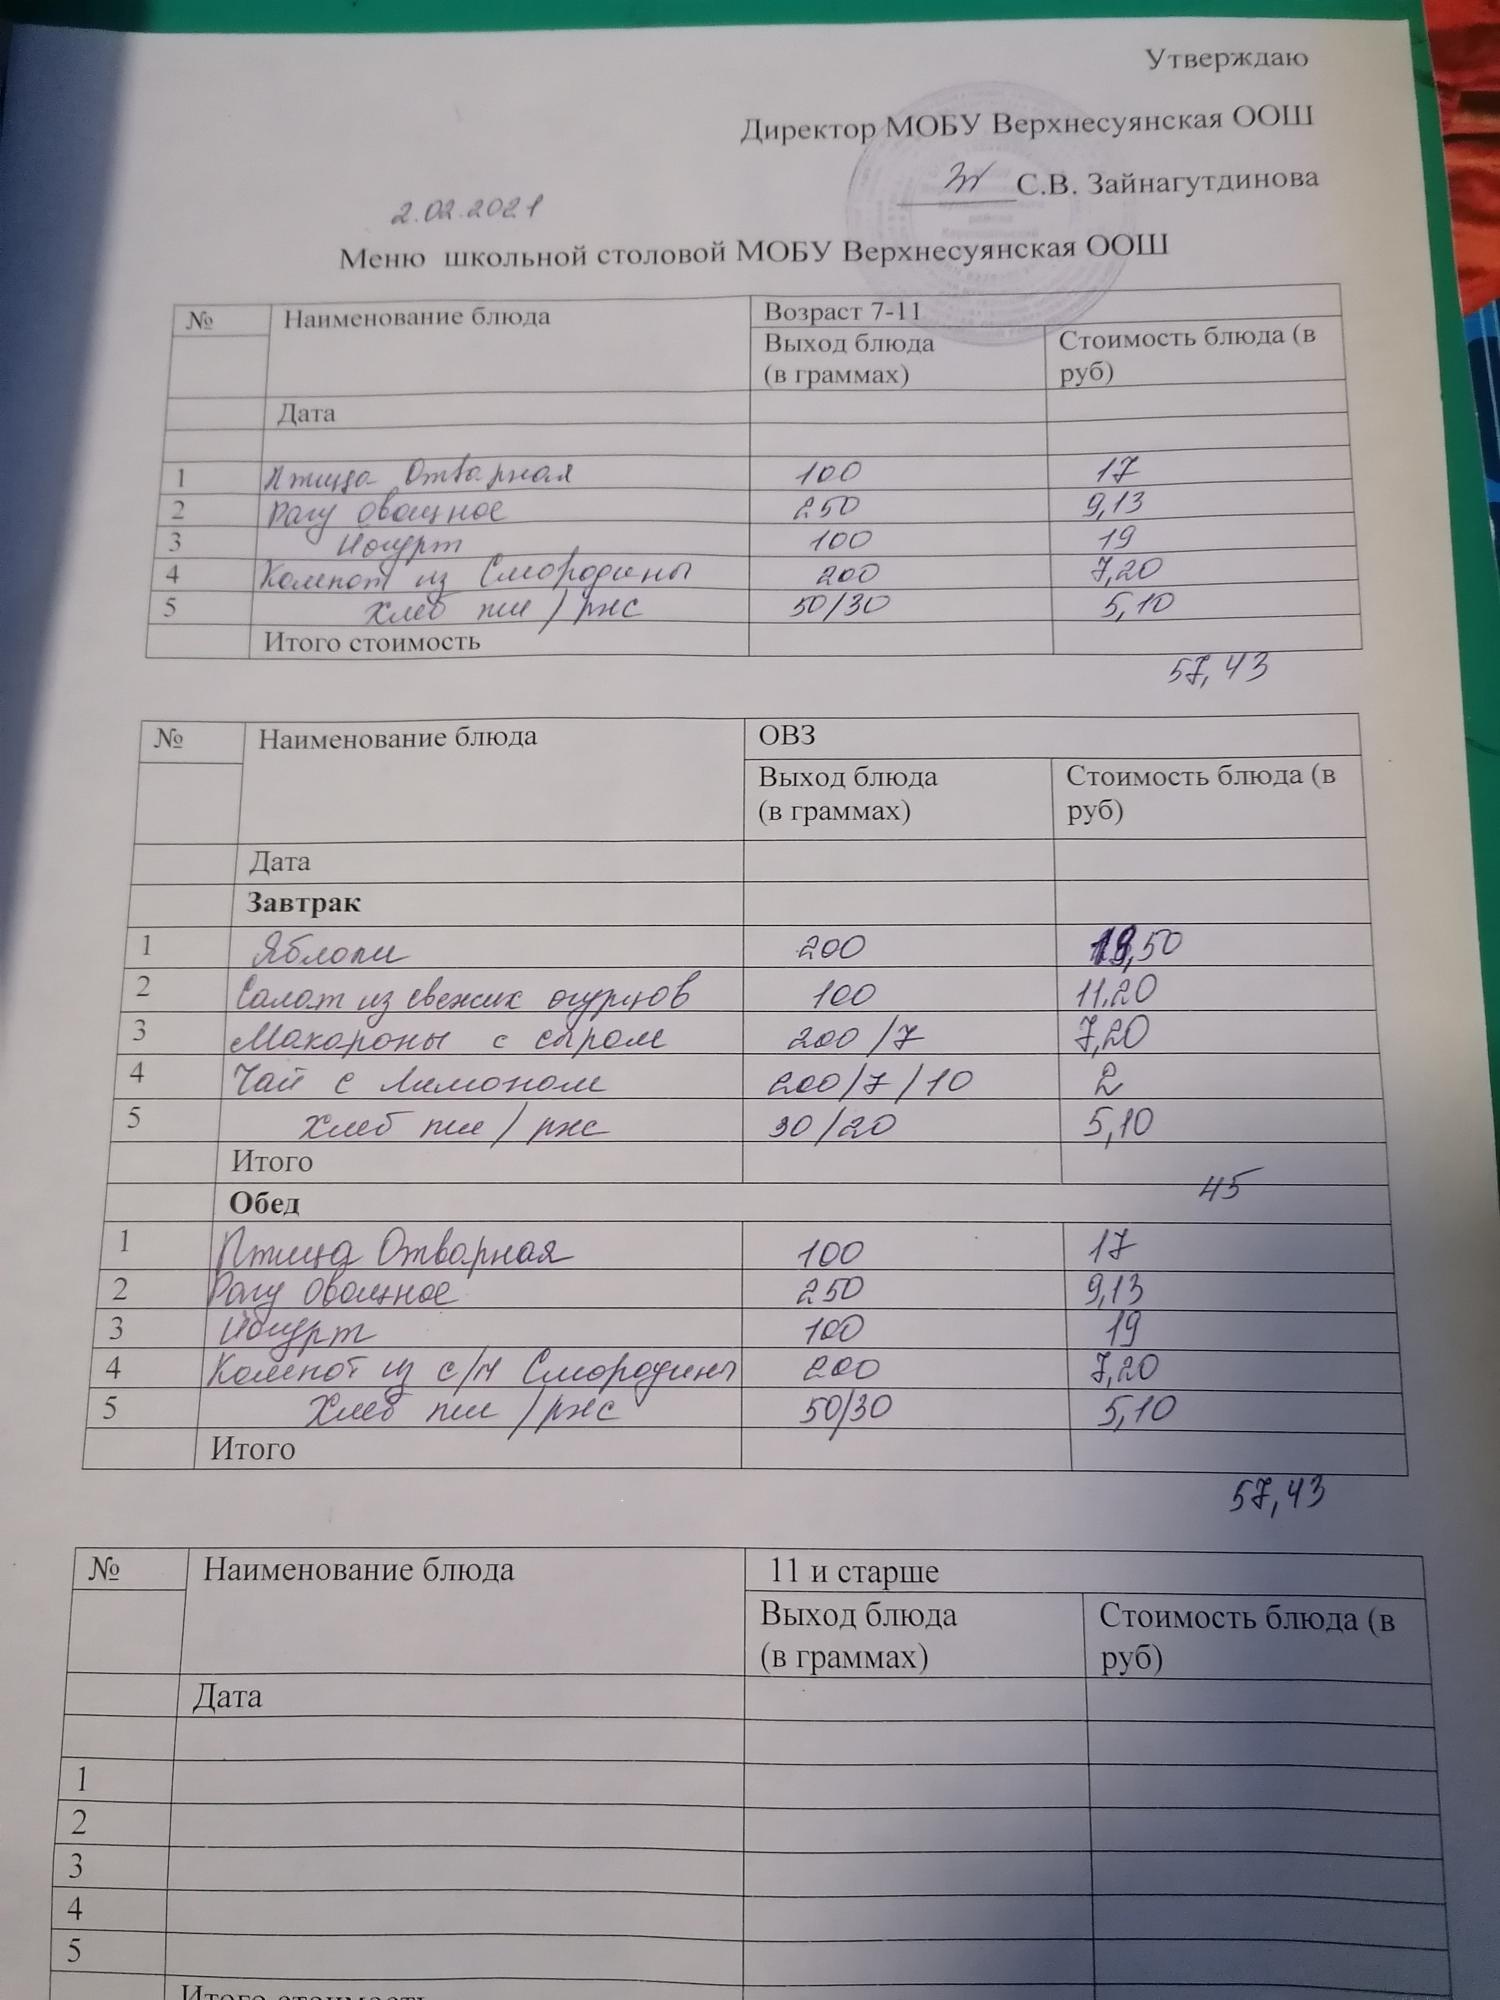 Утверждаю
Директор МОБУ Верхнесуянская ООШ
С.В. Зайнагутдинова
2.02.2021
Меню школьной столовой МОБУ Верхнесуянская ООШ
№ Наименование блюда Возраст 7-11
Выход блюда (в граммах) Стоимость блюда (в руб)
Дата
1 Птица Отварная 100 17
2 Рагу овощное 250 9,13
3 Йогурт 100 19
4 Компот из Смородины 200 7,20
5 Хлеб пш/ржс 50/30 5,10
Итого стоимость
57,43
№ Наименование блюда ОВЗ
Выход блюда (в граммах) Стоимость блюда (в руб)
Дата
Завтрак
1 Яблоки 200 19,50
2 Салат из свежих огурцов 100 11.20
3 Макароны с сыром 200/7 7,20
4 Чай с Лимоном 200/7/10 2
5 Хлеб пш/ржс 30/20 5,10
Итого
45
Обед
1 Птица Отварная 100 17
2 Рагу Овощное 250 9,13
3 Йогурт 100 19
4 Компот из с/м Смородины 200 7,20
5 Хлеб пш/ржс 50/30 5,10
Итого
57,43
№ Наименование блюда 11 и старше
Выход блюда (в граммах) Стоимость блюда (в руб)
Дата
1
2
3
4
5
Итого стоимость